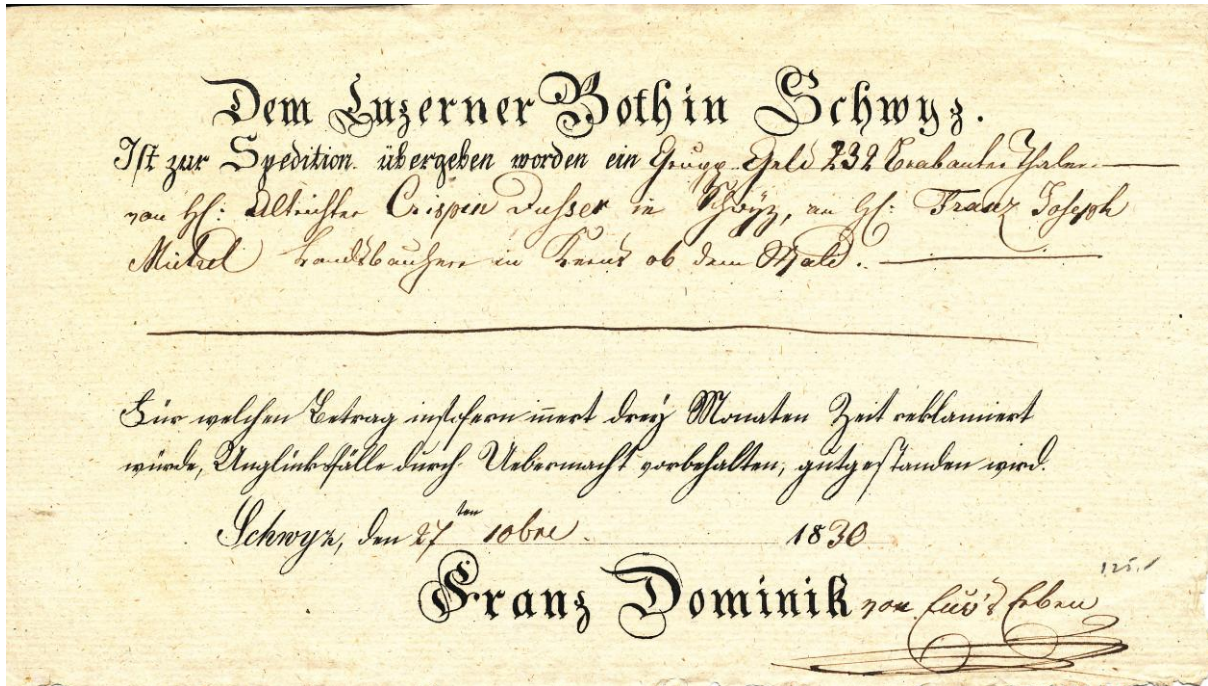 Dem Luzerner Both in Schwyz.
Ist zur Spedition übergeben worden ein Grupp Geld 232 Brabanter Thaler
von Hh: Altrichter Crispin Dusser in Schwyz, an Hh: Franz Joseph
Michael Landsbauherr in Kerns ob dem Wald.
Für welchen Betrag insofern innert drey Monaten Zeit reklamiert
würde, Unglücksfälle durch Uebermacht vorbehalten, gutgestanden wird.
Schwyz, den 27ten 10bre 1830
125.-
Franz Dominik von Euw's Erben